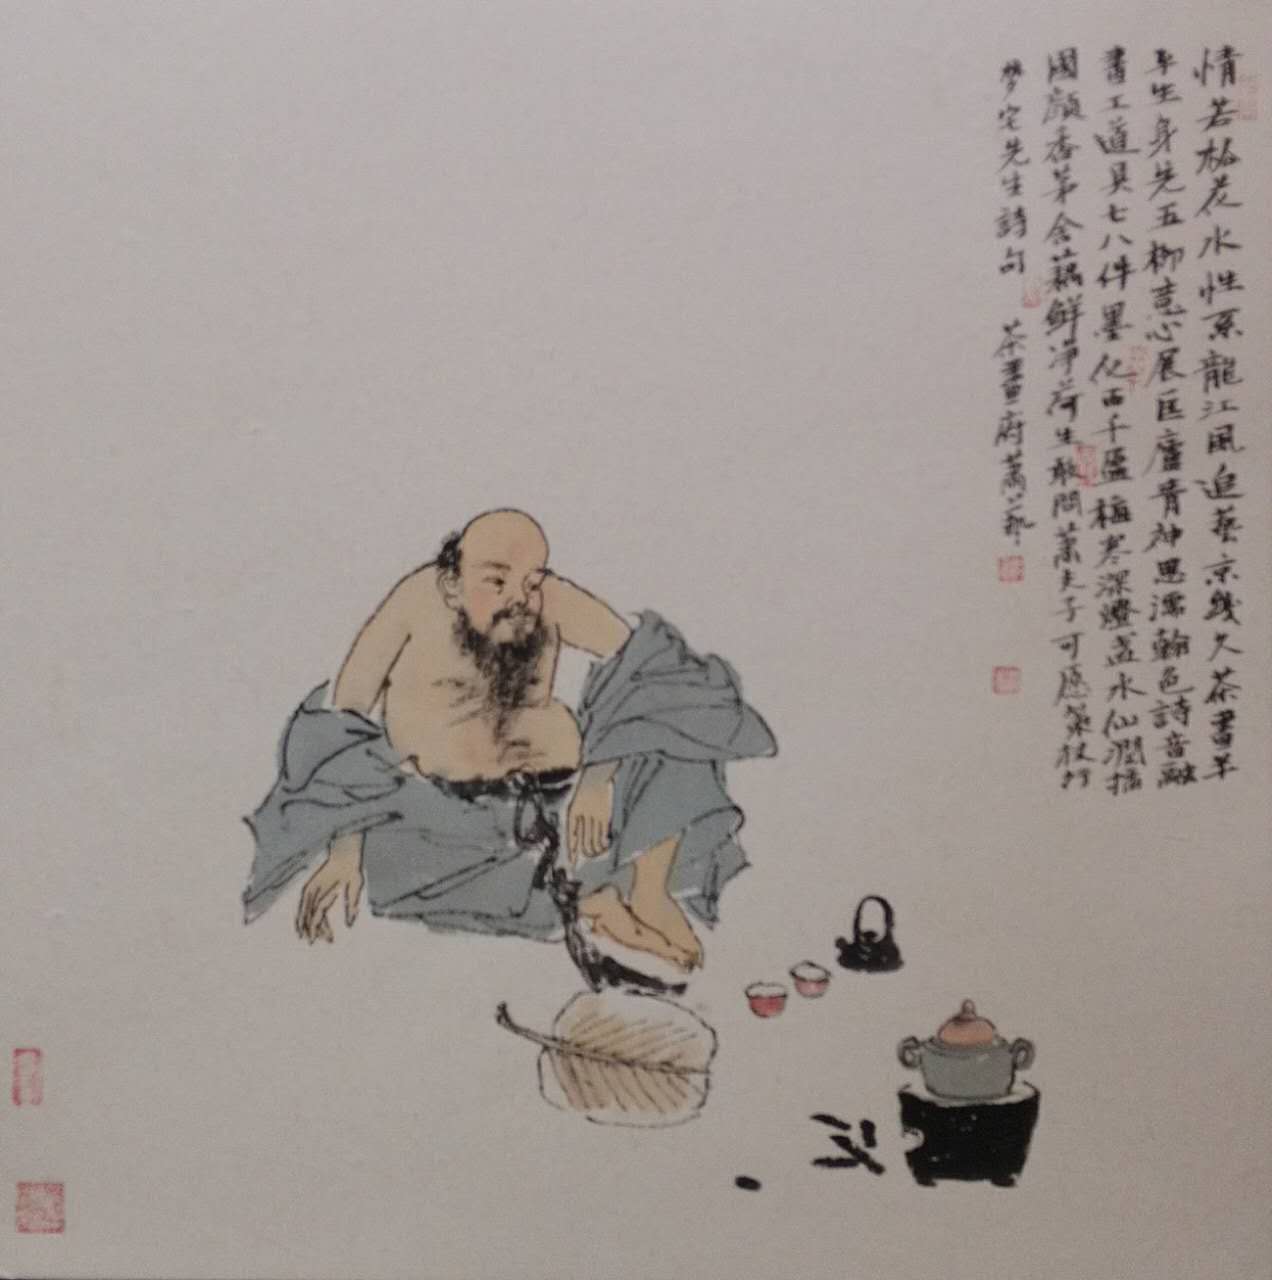 情若松花水性系龍江風追藝京幾久茶書早
平生身先五柳意心展匡廬青神思濡翰色詩音融
書工道具七八件墨化西千區梅寒深燈盞水仙潤描
國顏香茅舍藕鮮淨荷生敢問蕭夫子可愿築杖行
夢宅先生詩句 茶畫府蕭藝